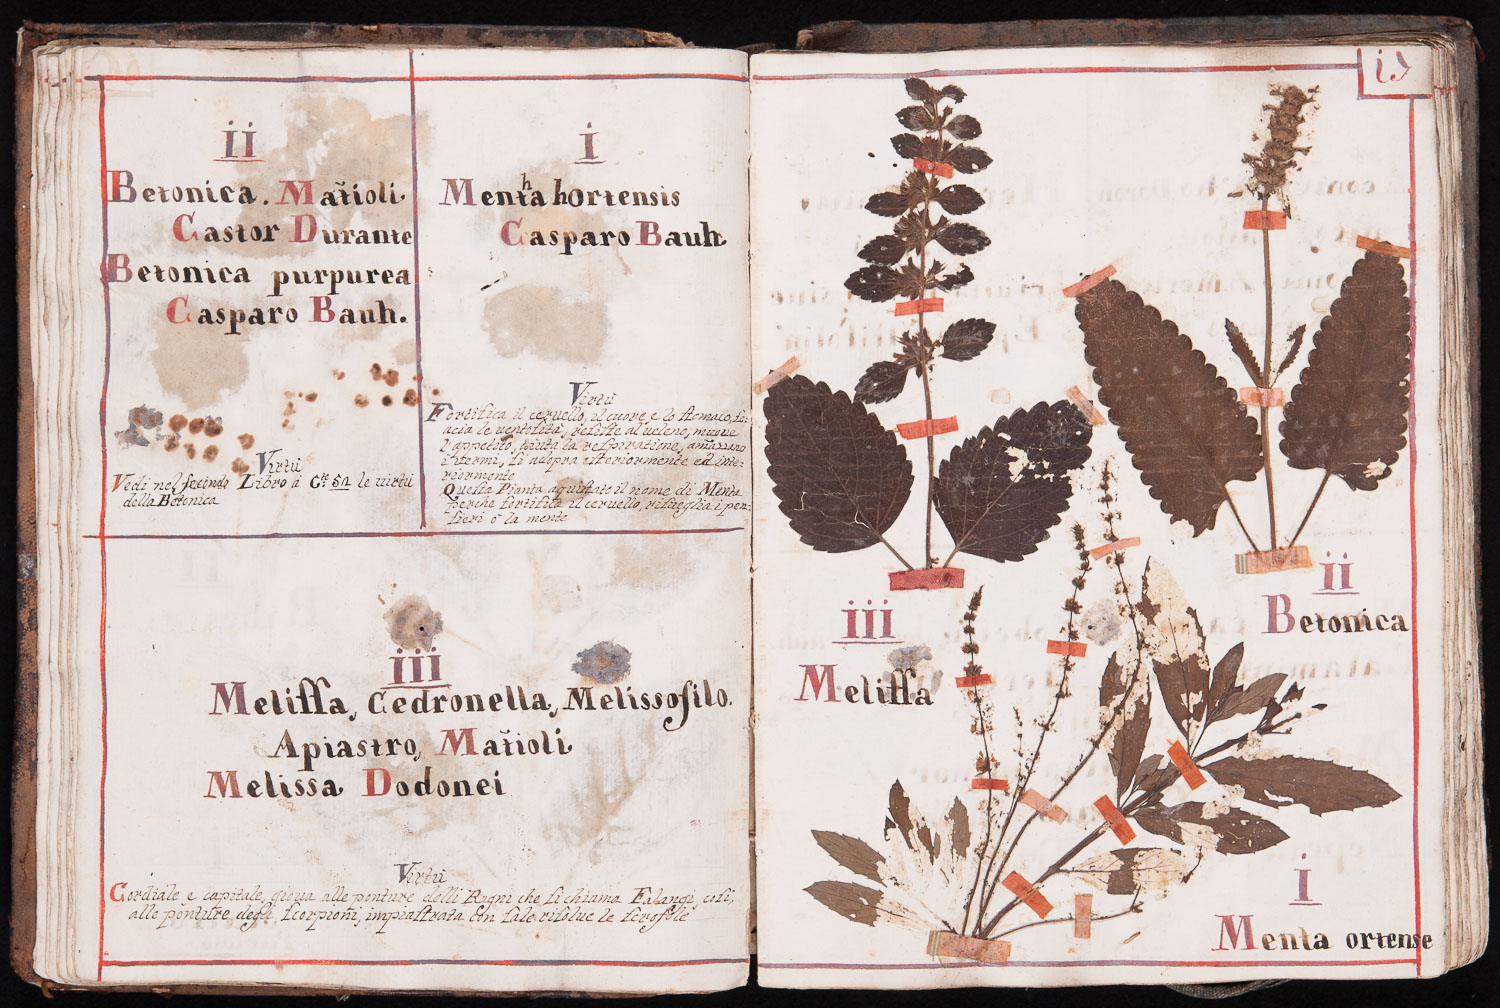 ii
Betonica. Matioli
Castor Durante
Betonica purpurea
Casparo Bauh.
Virtù
Vedi nel secondo Libro à Cte 51 le virtù
della Betonica
i
Mentha hortensis
Casparo Bauh
Virtù
Fortifica il ceruello, il cuore e lo stomaco, sca-
acia le ventosità, resiste al veleno, muove
l'appetito, aiuta la respiratione, amazzano
i vermi, si adopra esteriormente ed inte-
riormente
Questa Pianta aquistato il nome di Menta
perche fortifica il ceruello, risueglia i pen-
sieri ò la mente
iii
Melissa, Cedronella, Melissofilo.
Apiastro, Matioli
Melissa Dodonei
Virtù
Cordiale e capitale, gioua alle ponture delli Ragni che si chiama Falangi, così,
alle ponture degli scorpioni, impiastrata con sale risolue le scrofole
ii
Betonica
iii
Melissa
i
Menta ortense